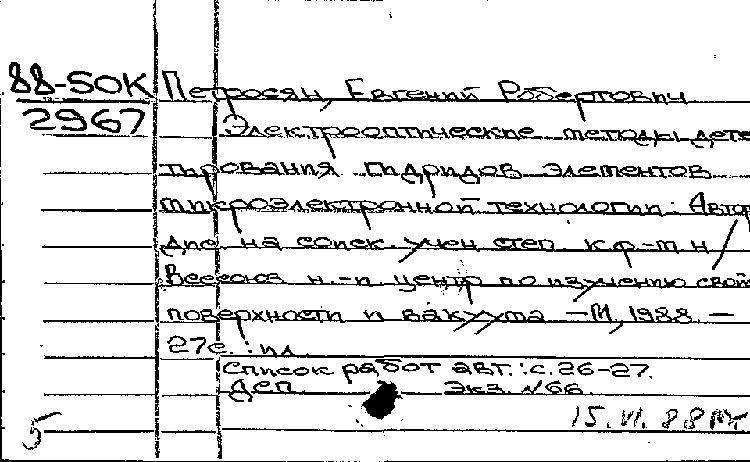 88-50К Петросян, Евгений Робертович
2967 Электрооптические методы дете
тирования гидридов элементов
микроэлектронной технологии: Автор
дис. на соиск. учен. степ. к.ф.-м.н /
Всесоюз. н.-и. центр по изучению свой
поверхности и вакуума. -М., 1988. -
27с.: ил.
Список работ авт.: с.26-27.
ДСП Экз. №66
15.VI.88
5